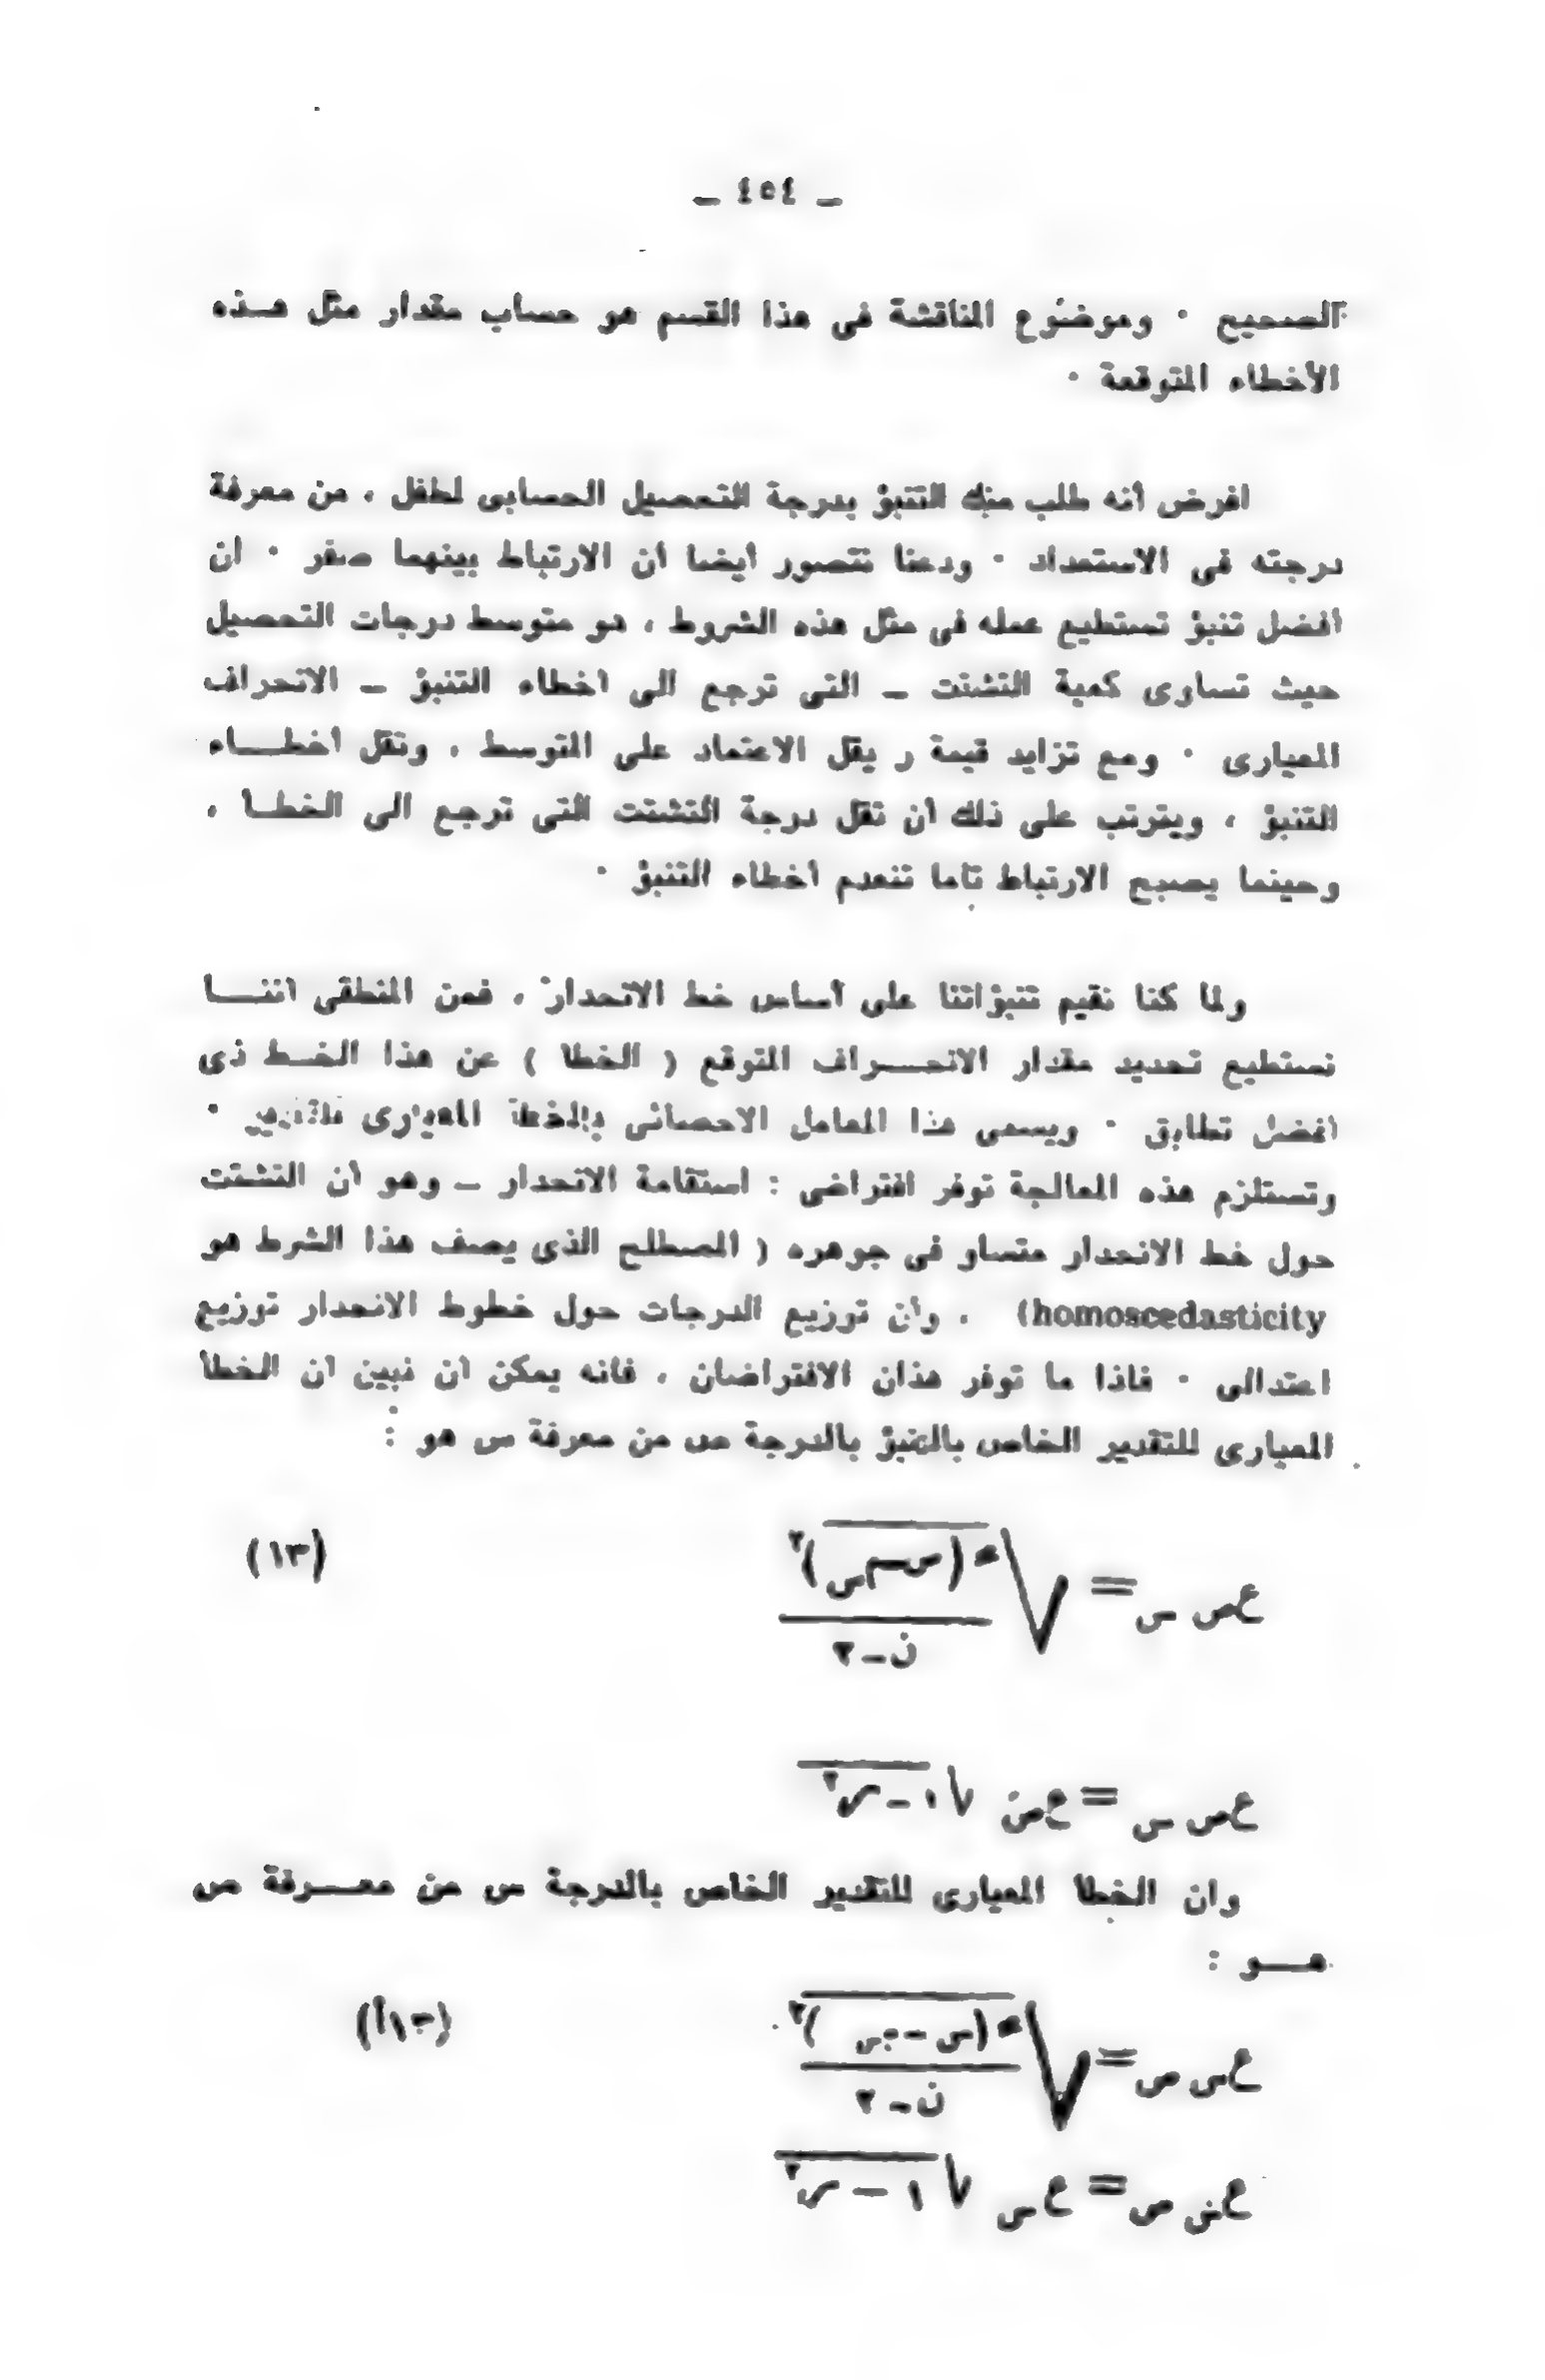 ـ ٤٥٤ ـ
الصحيح ٠ وموضوع المناقشة فى هذا القسم هو حساب مقدار مثل هـذه
الأخطاء المتوقعة ٠
افرض أنه طلب منك التنبؤ بدرجة التحصيل الحسابى لطفل ، من معرفة
درجته فى الاستعداد ٠ ودعنا نتصور أيضا أن الارتباط بينهما صفر ٠ ان
أفضل تنبؤ تستطيع عمله فى مثل هذه الشروط ، هو متوسط درجات التحصيل
حيث تساوى كمية التشتت ـ التى ترجع الى أخطاء التنبؤ ـ الانحراف
المعيارى ٠ ومع تزايد قيمة ر يقل الاعتماد على المتوسط ، وتقل أخطـــاء
التنبؤ ، ويترتب على ذلك أن تقل درجة التشتت التى ترجع الى الخطـأ ،
وحينما يصبح الارتباط تاما تنعدم أخطاء التنبؤ ٠
ولما كنا نقيم تنبؤاتنا على أساس خط الانحدار ، فمن المنطقى أننـــا
نستطيع تحديد مقدار الانحـــراف المتوقع ( الخطا ) عن هذا الخـط ذى
أفضل تطابق ٠ ويسمى هذا المعامل الاحصائى بالخطأ المعيارى للتقدير ٠
وتستلزم هذه المعالجة توفر افتراضى : استقامة الانحدار ـ وهو أن التشتت
حول خط الانحدار متساو فى جوهره ( المصطلح الذى يصف هذا الشرط هو
homoscedasticity) ، وأن توزيع الدرجات حول خطوط الانحدار توزيع
اعتدالى ٠ فاذا ما توفر هذان الافتراضان ، فانه يمكن أن نبين أن الخطأ
المعيارى للتقدير الخاص بالتنبؤ بالدرجة ص من معرفة س هو :
ع ص س = √ (ص ـ ص)٢ / ن ـ ٢ (١٣)
ع ص س = ع ص √ ١ ـ ر٢
وان الخطأ المعيارى للتقدير الخاص بالدرجة س من معـــرفة ص
هـــو :
ع س ص = √ (س ـ س)٢ / ن ـ ٢ (١٣أ)
ع س ص = ع س √ ١ ـ ر٢